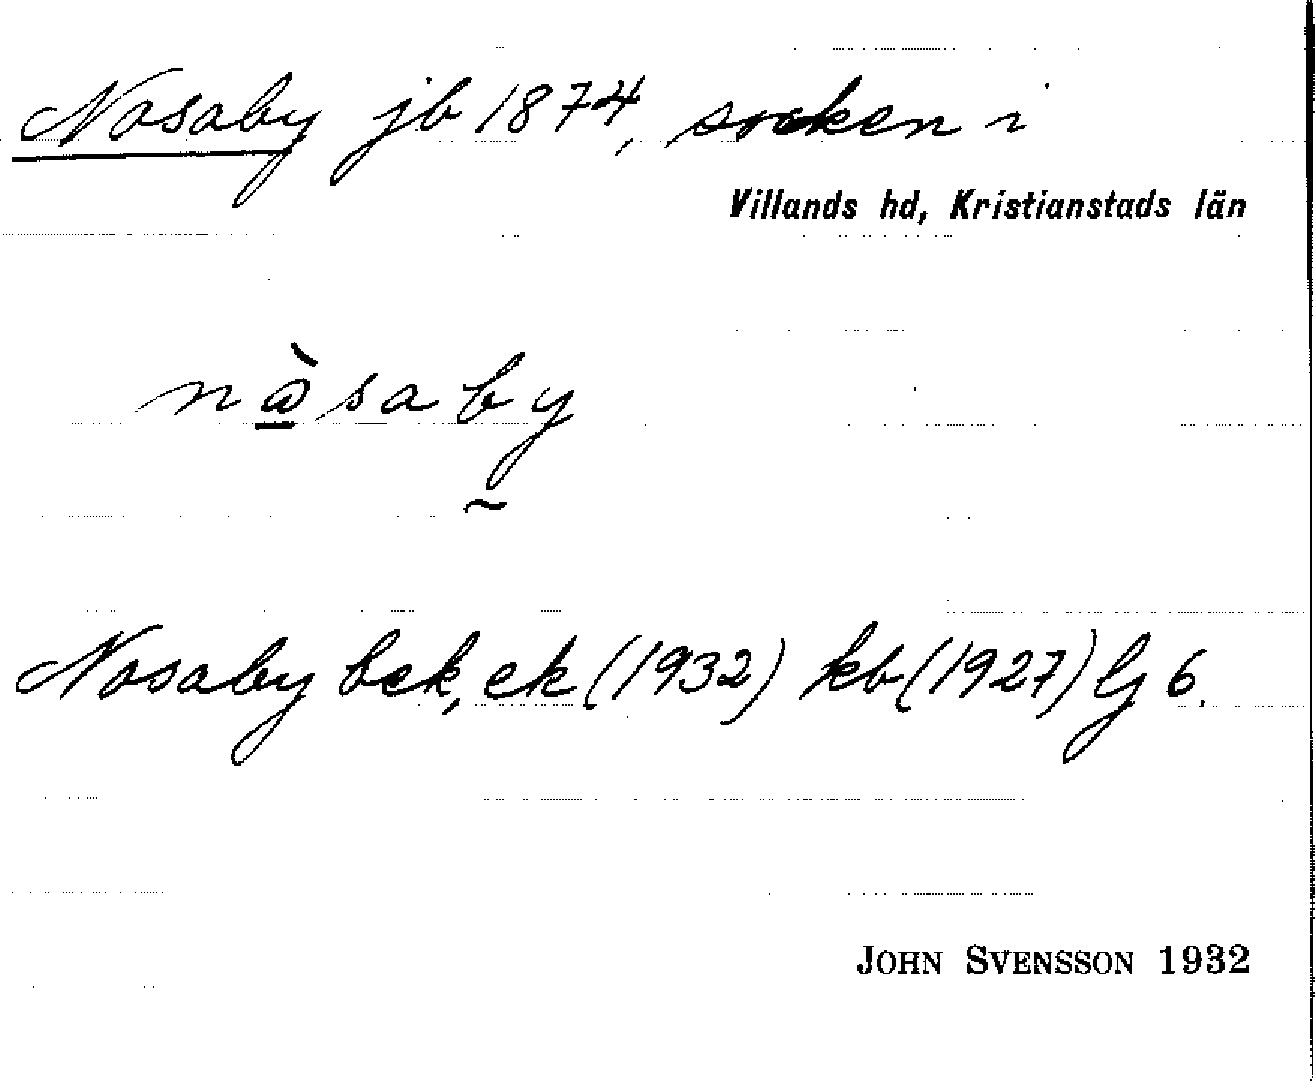 Nosaby jb 1874, socken i
Villands hd, Kristianstads län
nⱥ̀saby
Nosaby bck, ek (1932) kb (1927) lj 6.
JOHN SVENSSON 1932